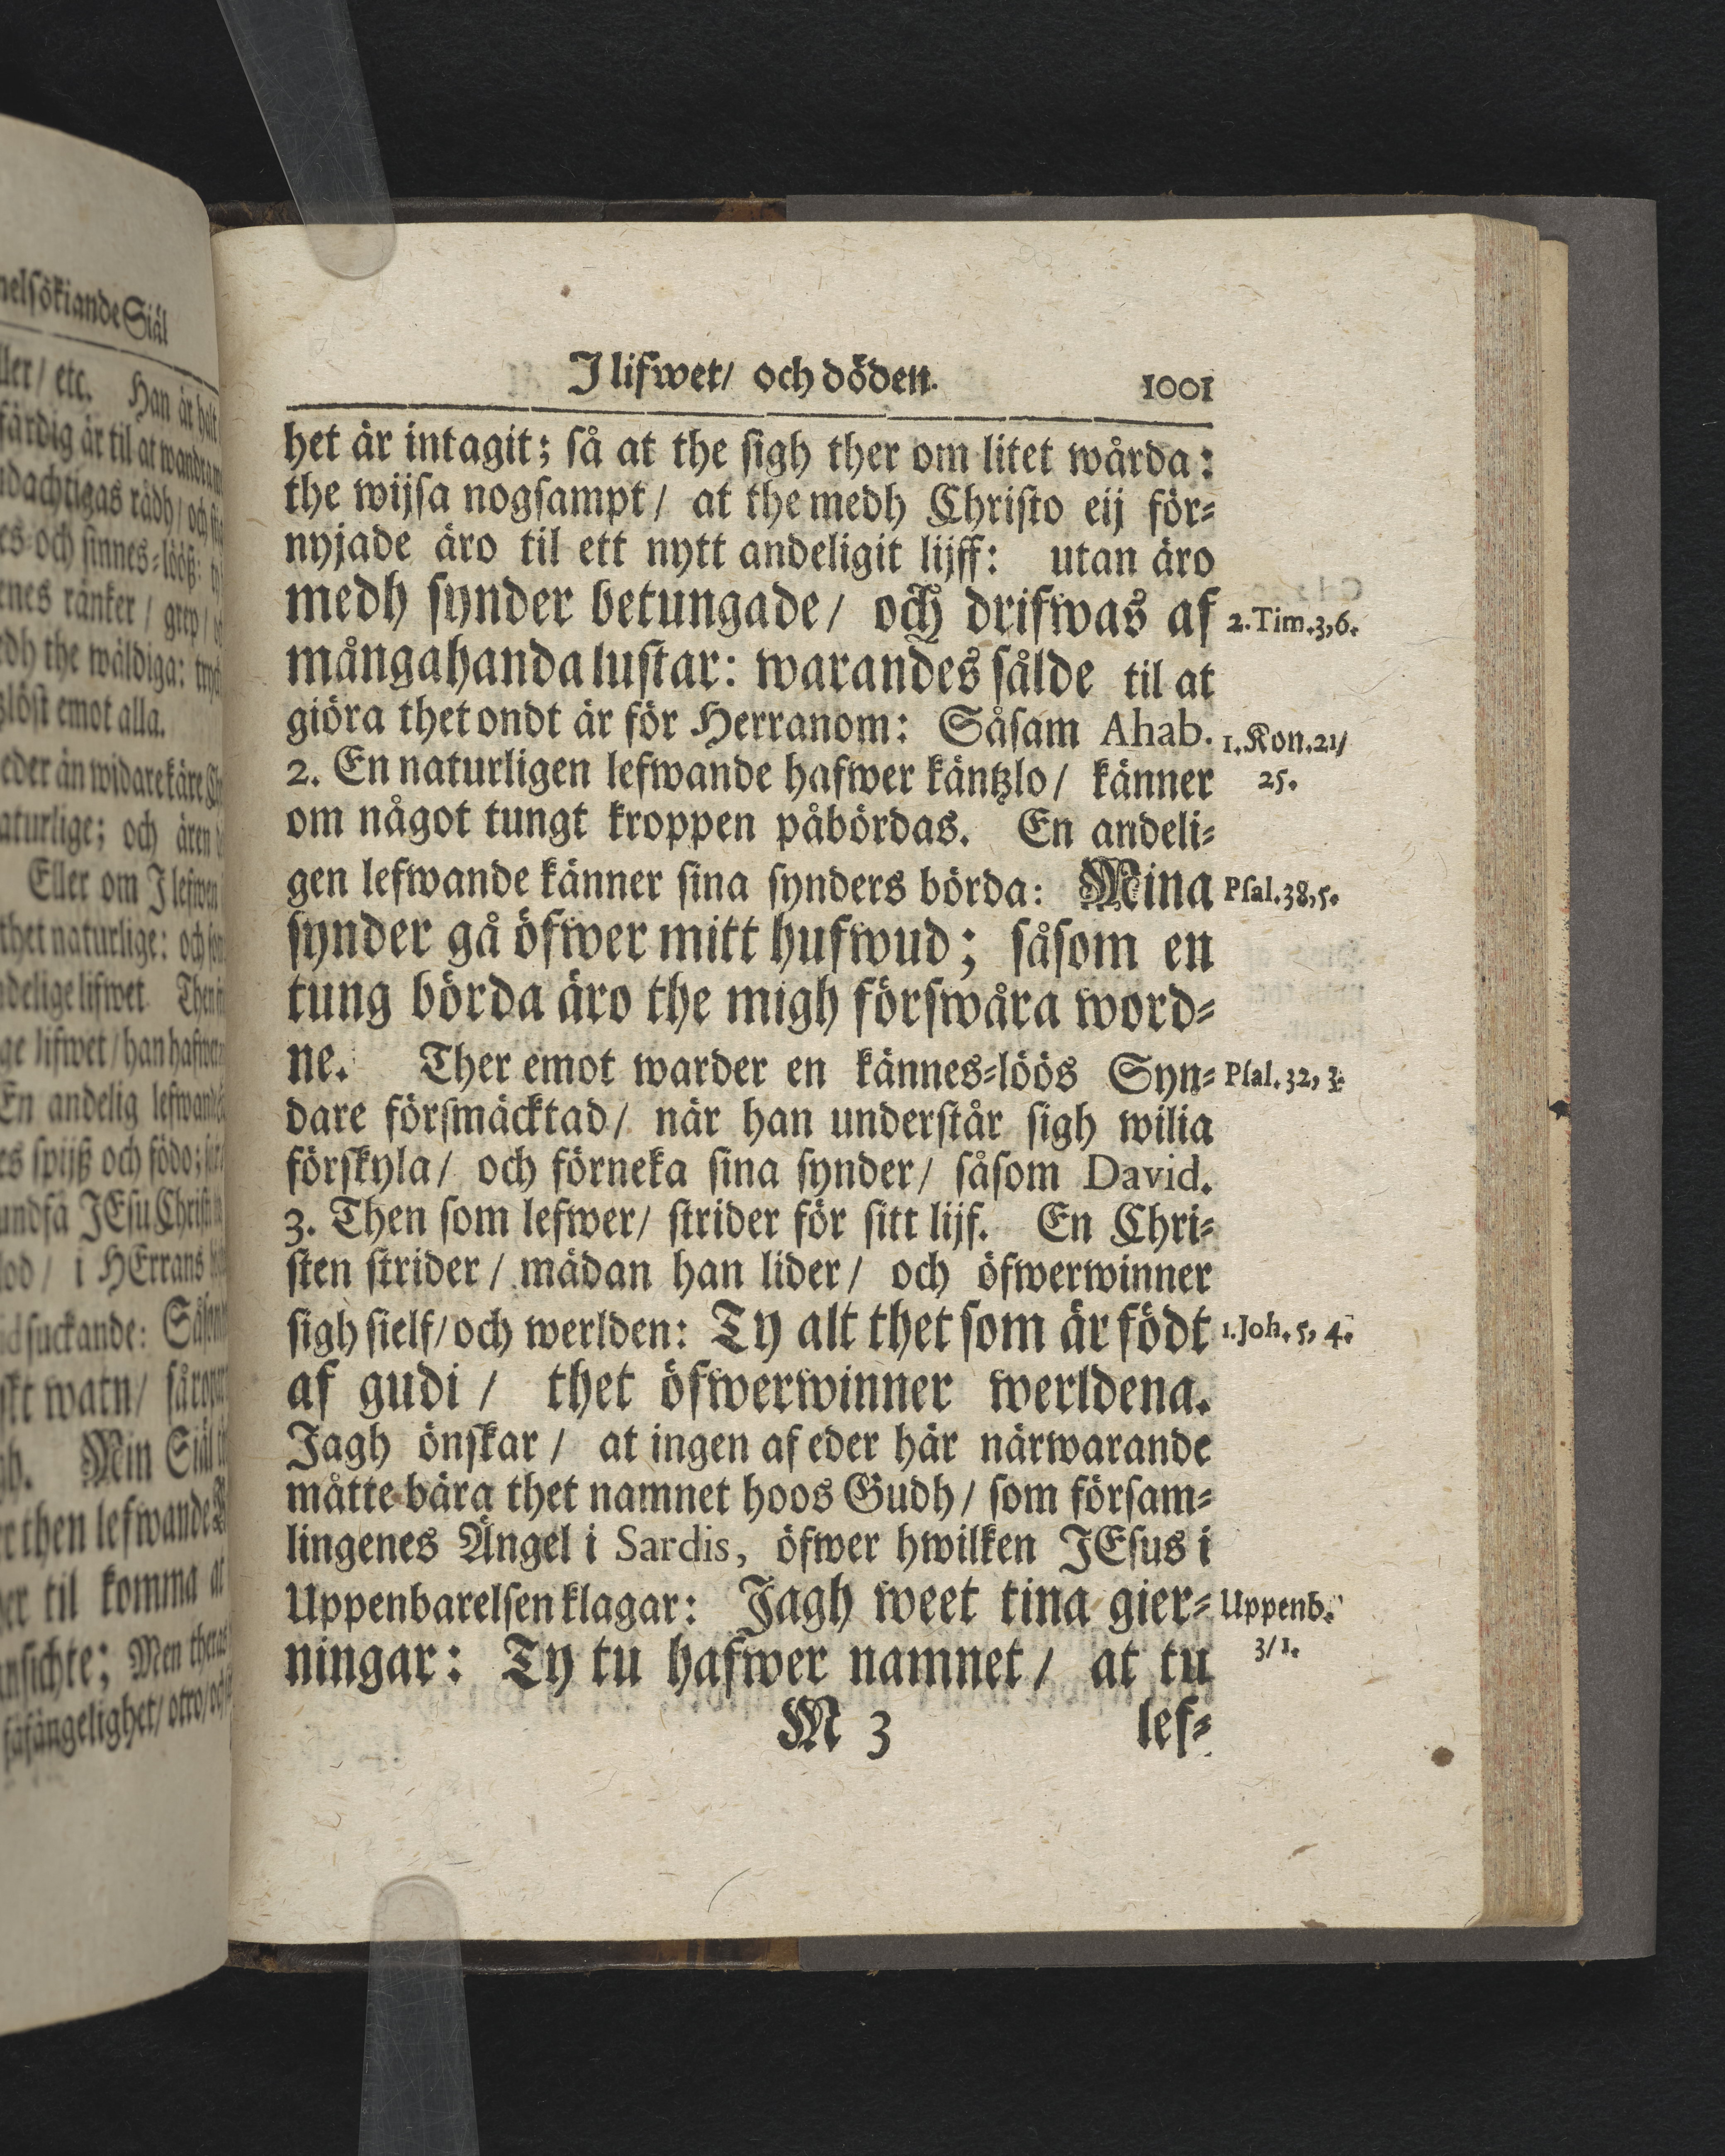 nelsökiande Siäl
ller/ etc. Han är
färdig är til at
dachtigas rådh/
es och sinnes-lööß:
enes ränker / grep/
dh the wäldiga:
slöst emot alla.
eder än widare käre
aturlige; och ären
Eller om J
thet naturlige:
delige lifwet
ge lifwet/
En andelig
es spijß och födo;
undfå JEsu
lod / i HErrans
suckande:
watn/
Min Siäl
then lefwande
til komma
nsichte; Men
fåfängelighet/ otro/
J lifwet/ och döden. 1001
het är intagit; så at the sigh ther om litet wårda:
the wijsa nogsampt / at the medh Christo eij för-
nyjade äro til ett nytt andeligit lijff: utan äro
medh synder betungade / och drifwas af 2. Tim. 3, 6.
mångahanda lustar: warandes sålde til at
giöra thet ondt är för Herranom: Såsam Ahab. 1. Kon. 21/
2. En naturligen lefwande hafwer käntzlo / känner 25.
om något tungt kroppen påbördas. En andeli-
gen lefwande känner sina synders börda: Mina Psal. 38, 5.
synder gå öfwer mitt hufwud; såsom en
tung börda äro the migh förswåra word-
ne. Ther emot warder en kännes-löös Syn- Psal. 32, 3.
dare försmäcktad / när han understår sigh wilia
förskyla / och förneka sina synder / såsom David.
3. Then som lefwer / strider för sitt lijf. En Chri-
sten strider / mädan han lider / och öfwerwinner
sigh sielf/ och werlden: Ty alt thet som är födt 1. Joh. 5, 4.
af gudi / thet öfwerwinner werldena.
Jagh önskar / at ingen af eder här närwarande
måtte bära thet namnet hoos Gudh / som försam-
lingenes Ängel i Sardis, öfwer hwilken JEsus i
Uppenbarelsen klagar: Jagh weet tina gier- Uppenb.
ningar: Ty tu hafwer namnet / at tu 3/ 1.
M 3 lef-